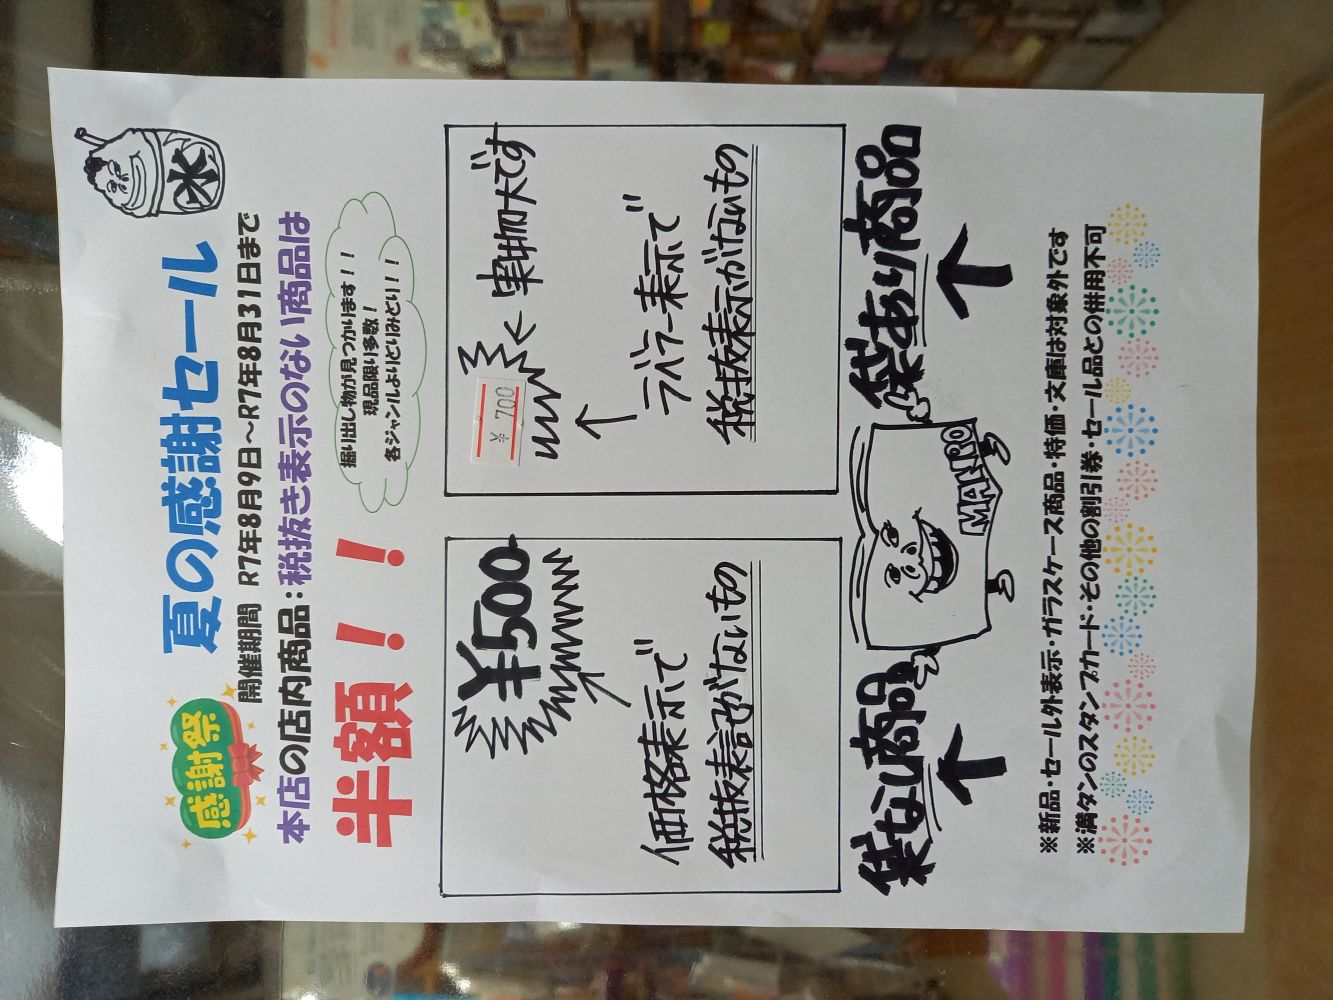 感謝祭
夏の感謝セール
氷
開催期間 R7年8月9日～R7年8月31日まで
本店の店内商品：税抜き表示のない商品は
半額！！！
掘り出し物が見つかります！！
現品限り多数！
各ジャンルよりどりみどり！！
¥500
価格表示で
税抜表記がないもの
¥ 700
実物大です
ラバラー表示で
税抜表示がないもの
袋なし商品
MANPRO
袋あり商品
※新品・セール外表示・ガラスケース商品・特価・文庫は対象外です
※満タンのスタンプカード・その他の割引券・セール品との併用不可